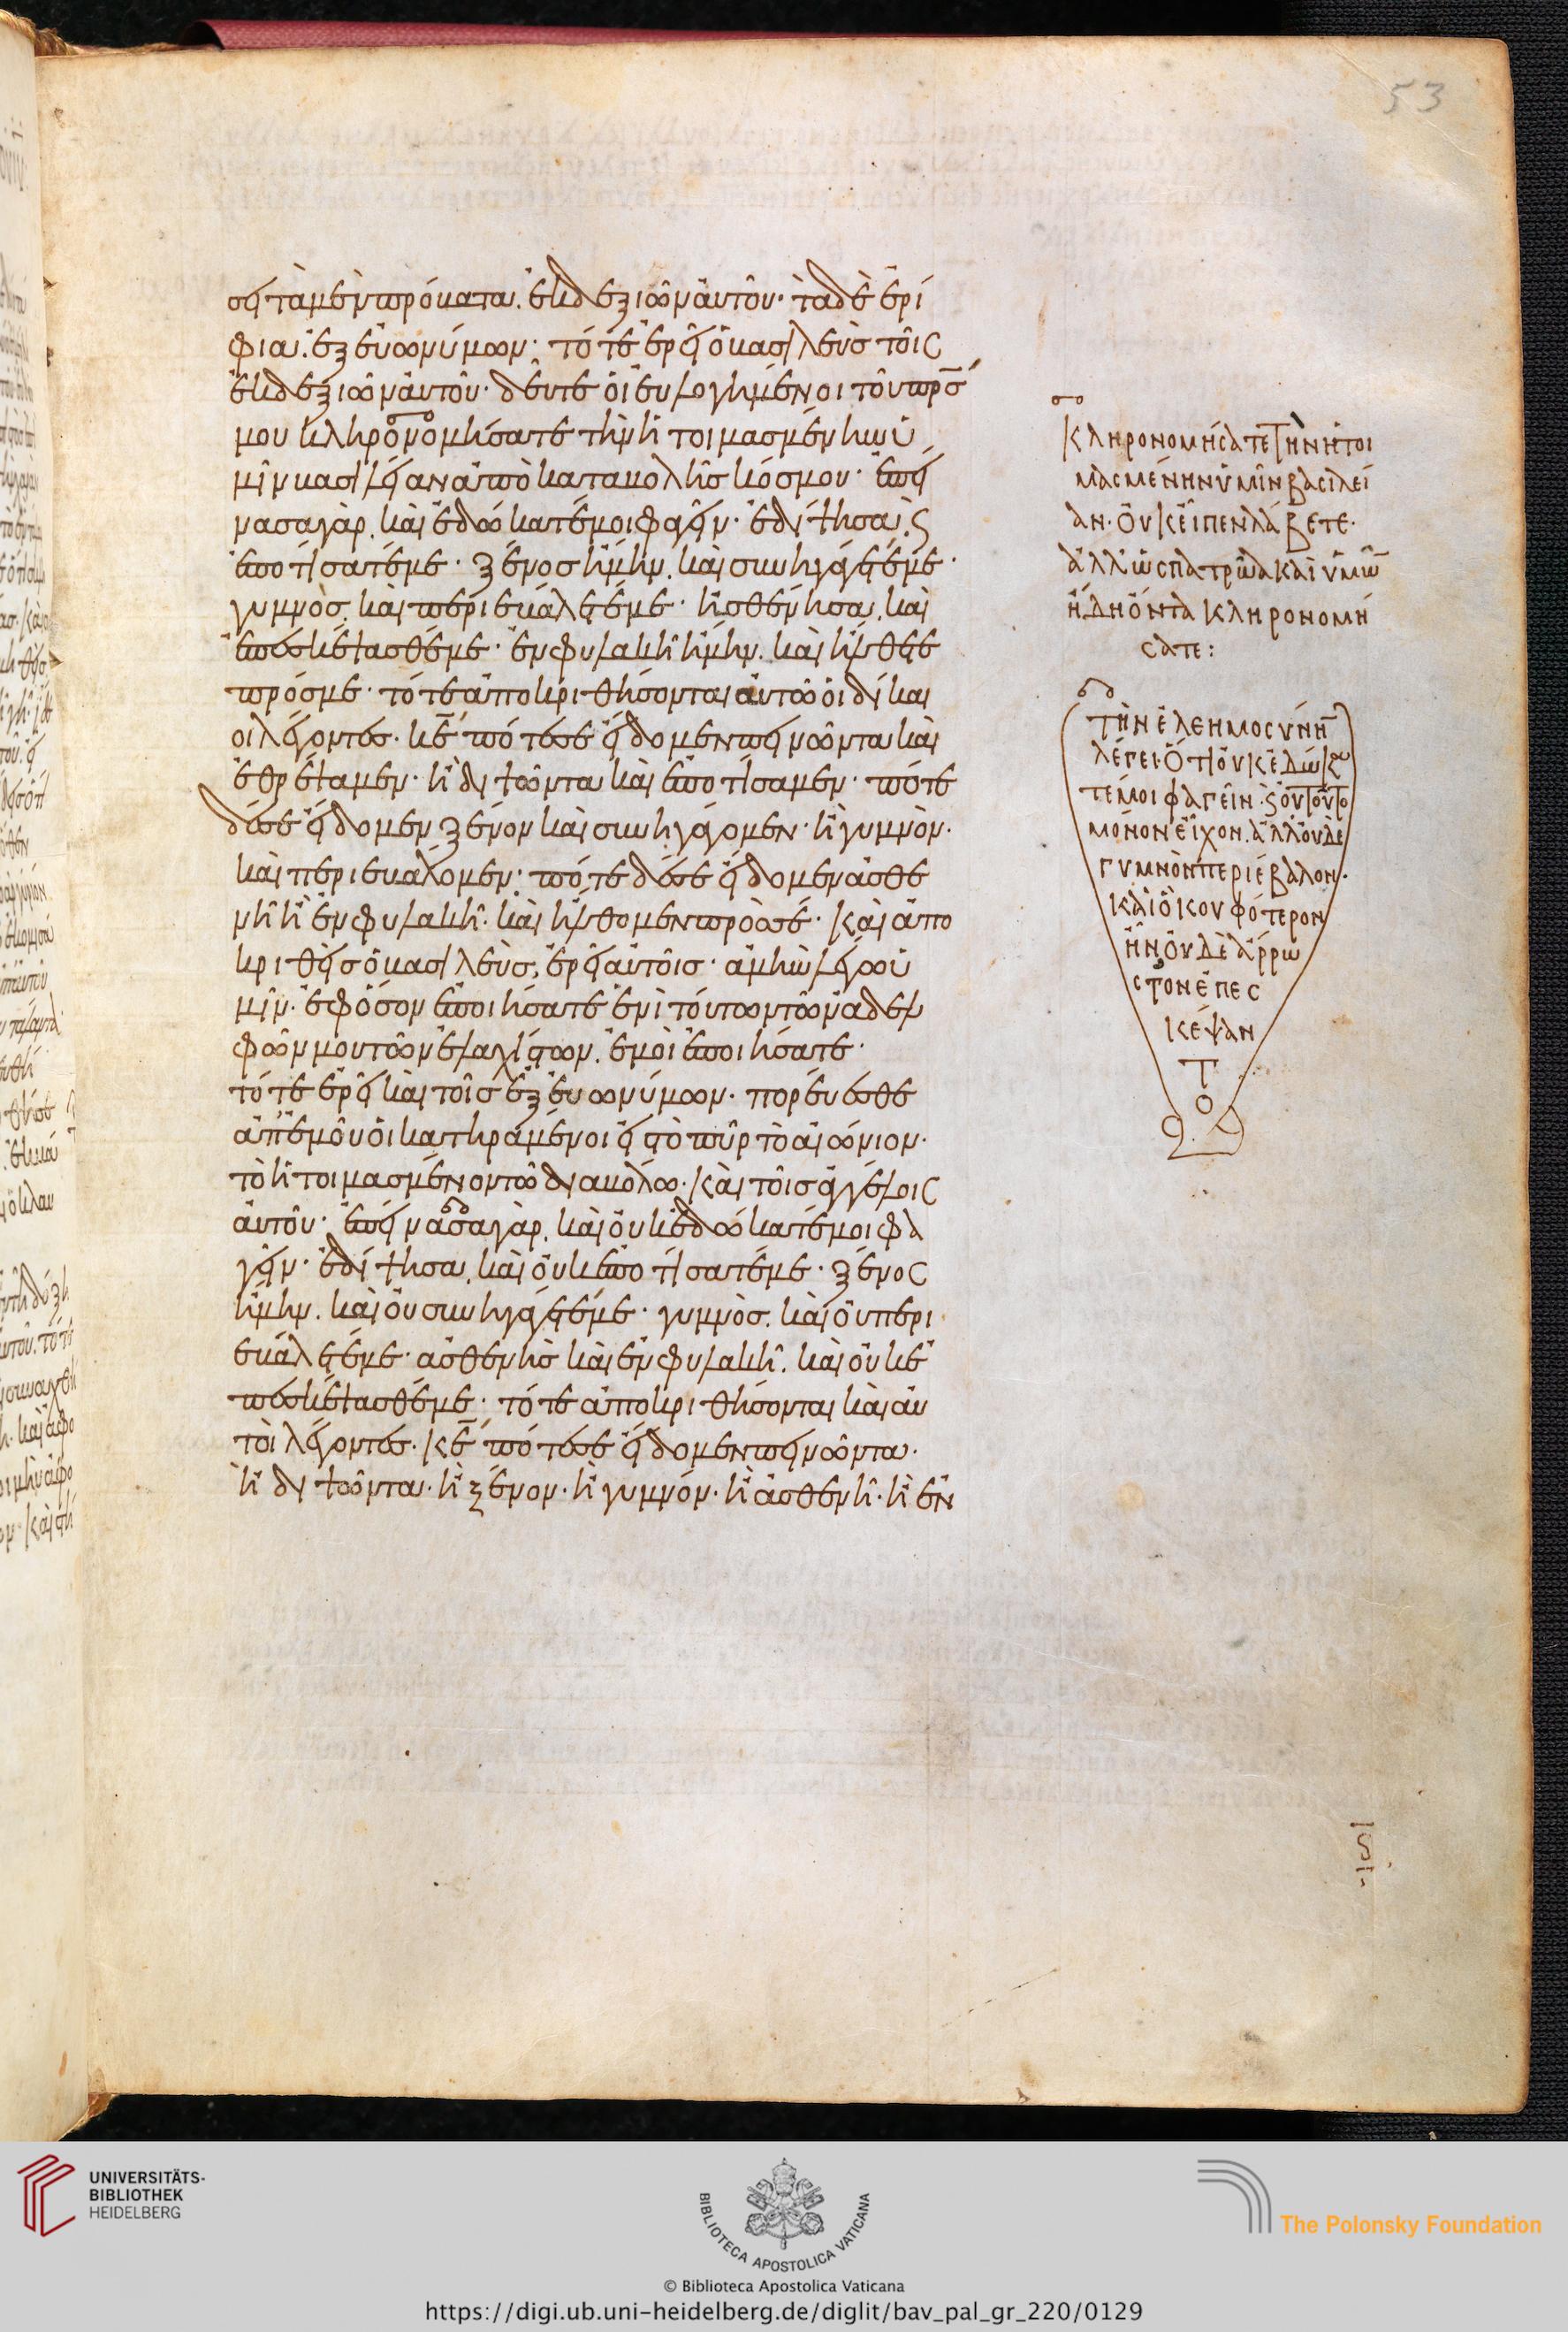 53
σει τὰ μὲν πρόβατα. ἐκ δεξιῶν αὐτοῦ· τὰ δὲ ἐρί
φια. ἐξ εὐωνύμων· τότε ἐρεῖ ὁ βασιλεὺς τοῖς
ἐκ δεξιῶν αὐτοῦ· δεῦτε οἱ εὐλογημένοι τοῦ πρσ
μου κληρονομήσατε τὴν ἡτοιμασμένην ὑ
μῖν βασιλείαν ἀπὸ καταβολῆς κόσμου· ἐπεί
νασα γὰρ. καὶ ἐδώκατέ μοι φαγεῖν· ἐδίψησα, ϛ
ἐποτίσατέ με· ξένος ἤμην. καὶ συνηγάγετέ με·
γυμνὸς. καὶ περιεβάλετέ με· ἠσθένησα. καὶ
ἐπεσκέψασθέ με· ἐν φυλακῆ ἤμην. καὶ ἤλθετε
πρός με· τότε ἀποκριθήσονται αὐτῶ οἱ δίκαι
οι λέγοντες· κε πότε σε εἴδομεν πεινῶντα καὶ
ἐθρέψαμεν· ἢ διψῶντα καὶ ἐποτίσαμεν· πότε
δέ σε εἴδομεν ξένον καὶ συνηγάγομεν· ἢ γυμνὸν.
καὶ περιεβάλομεν· πότε δέ σε εἴδομεν ἀσθε
νῆ ἢ ἐν φυλακῆ. καὶ ἤλθομεν πρὸς σέ· καὶ ἀπο
κριθεὶς ὁ βασιλεὺς, ἐρεῖ αὐτοῖς· ἀμὴν λέγω ὑ
μῖν· ἐφ ὅσον ἐποιήσατε ἑνὶ τούτων τῶν ἀδελ
φῶν μου τῶν ἐλαχίστων. ἐμοὶ ἐποιήσατε·
τότε ἐρεῖ καὶ τοῖς ἐξ εὐωνύμων· πορεύεσθε
ἀπ' ἐμοῦ οἱ κατηραμένοι εἰς τὸ πῦρ τὸ αἰώνιον·
τὸ ἡτοιμασμένον τῶ διαβόλω· καὶ τοῖς ἀγγέλοις
αὐτοῦ· ἐπείνασα γὰρ. καὶ οὐκ ἐδώκατέ μοι φα
γεῖν· ἐδίψησα, καὶ οὐκ ἐποτίσατέ με· ξένος
ἤμην. καὶ οὐ συνηγάγετέ με· γυμνὸς. καὶ οὐ περι
εβάλετέ με· ἀσθενὴς καὶ ἐν φυλακῆ. καὶ οὐκ ἐ
πεσκέψασθέ με· τότε ἀποκριθήσονται καὶ αὐ
τοὶ λέγοντες· κε πότε σε εἴδομεν πεινῶντα·
ἢ διψῶντα· ἢ ξένον· ἢ γυμνόν· ἢ ἀσθενῆ· ἢ ἐν
κληρονομήσατε τὴν ἡτοι
μασμένην ὑμῖν βασιλεί
αν· οὐκ εἶπεν λάβετε·
ἀλλ' ὡς πατρῶα καὶ ὑμῶ
ἤδη ὄντα κληρονομή
σατε:
τὴν ἐλεημοσύνη
λέγει· ὅτι οὐκ ἐδώκα
τέ μοι φαγεῖν· ϛ οὐ τοῦτο
μόνον εἶχον. ἀλλ' οὐδὲ
γυμνὸν περιέβαλον·
καὶ ὃ κουφότερον
ἦν οὐδὲ ἄρρω
στον ἐπεσ
κέψαν
το
UNIVERSITÄTS-
BIBLIOTHEK
HEIDELBERG
BIBLIOTECA APOSTOLICA VATICANA
The Polonsky Foundation
© Biblioteca Apostolica Vaticana
https://digi.ub.uni-heidelberg.de/diglit/bav_pal_gr_220/0129